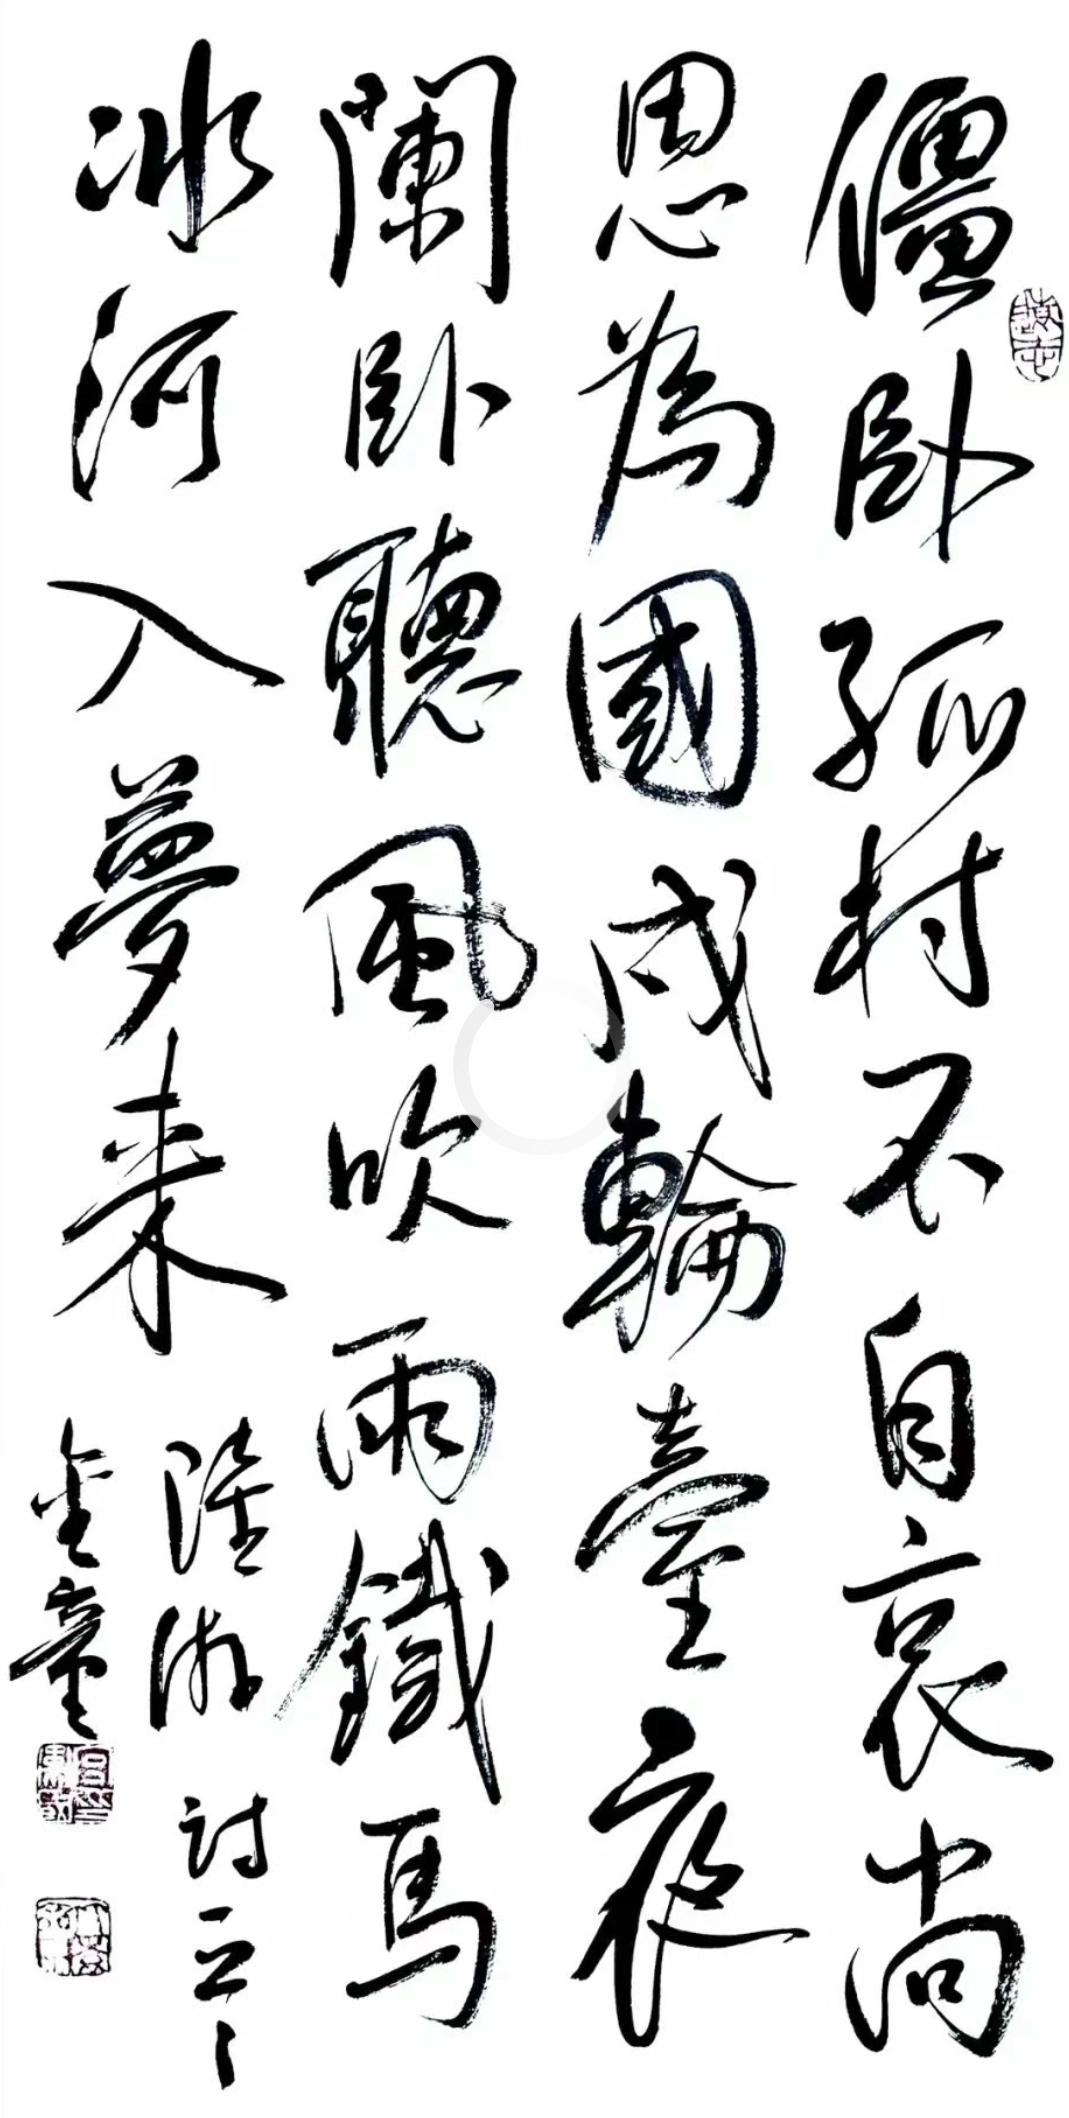 僵卧孤村不自哀尚
思為國戍輪臺夜
闌卧聽風吹雨鐵馬
冰河入夢来
陸游詩一
金童